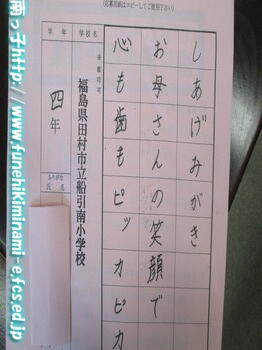 (応募用紙はコピーしてご使用下さい)
しあげみがき
お母さんの笑顔で
心も歯もピッカピカ
学年
四年
学校名
福島県田村市立船引南小学校
ふりがな
氏名
南っ子http://www.funehikiminami-e.fcs.ed.jp